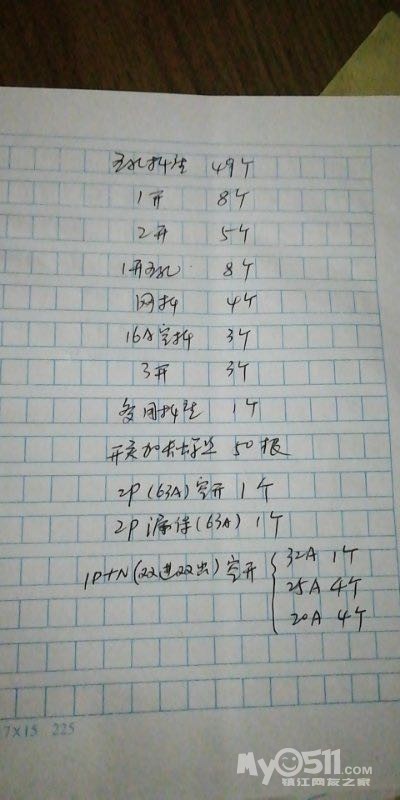 五孔插座 49个
1开 8个
2开 5个
1开五孔 8个
网插 4个
16A空插 3个
3开 3个
多用插座 1个
开关加长螺丝 50根
2P(63A)空开 1个
2P漏保(63A) 1个
1P+N(双进双出)空开 32A 1个
25A 4个
20A 4个
7X15 225
My0511.com
镇江网友之家